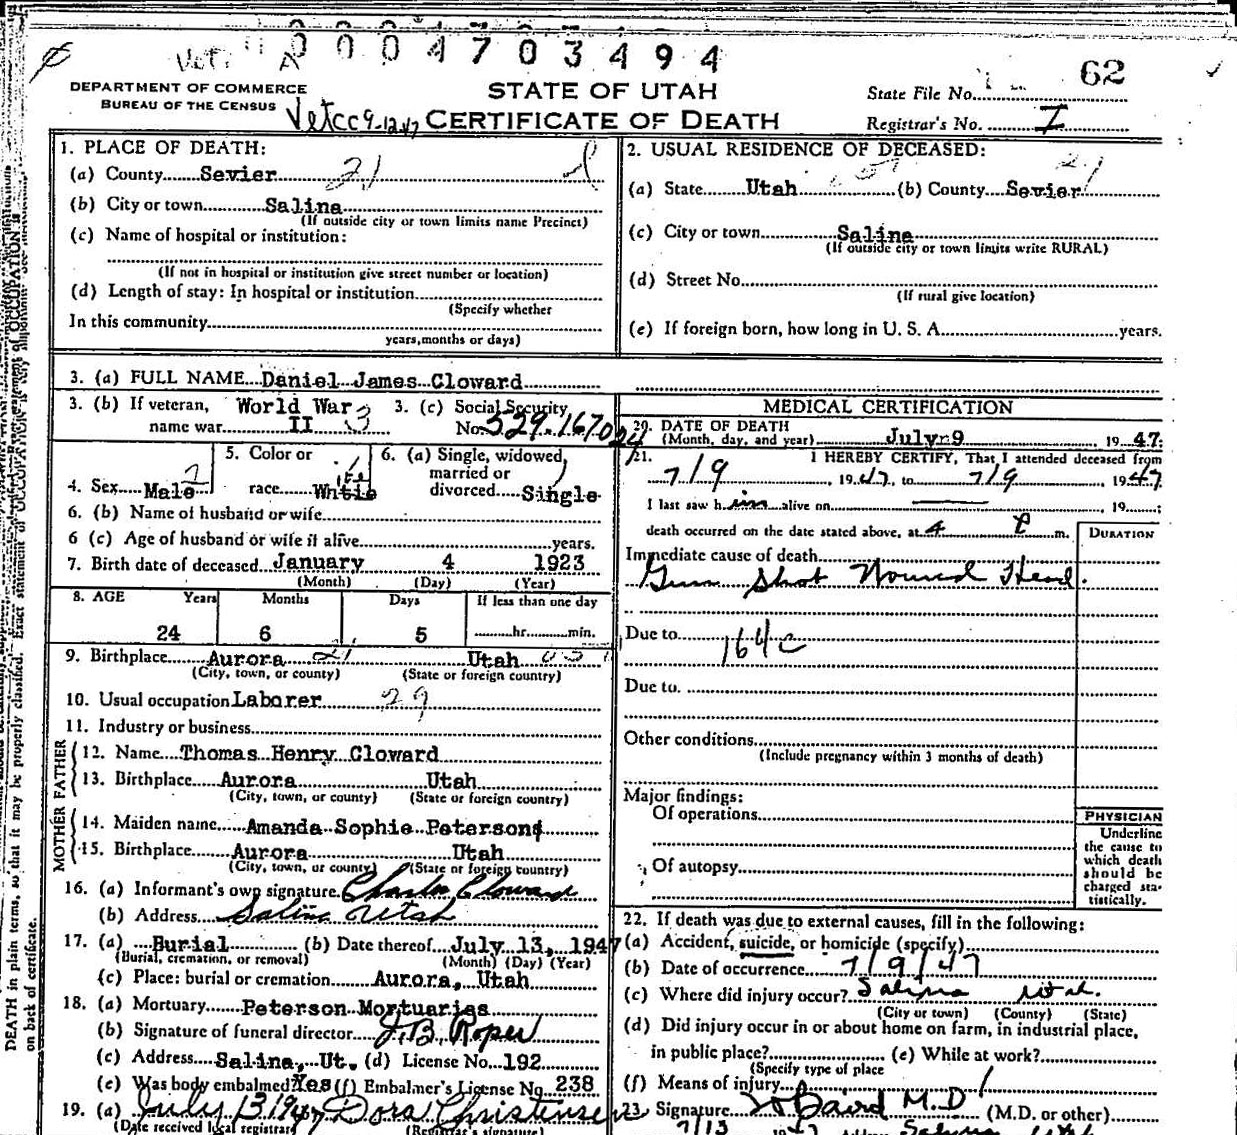 0004703494
Vet.
62
DEPARTMENT OF COMMERCE
BUREAU OF THE CENSUS
STATE OF UTAH
State File No.
Vetcc 9-12-47 CERTIFICATE OF DEATH
Registrar's No. I
1. PLACE OF DEATH:
(a) County Sevier 21
(b) City or town Salina
(If outside city or town limits name Precinct)
(c) Name of hospital or institution:
(If not in hospital or institution give street number or location)
(d) Length of stay: In hospital or institution
(Specify whether
In this community
years, months or days)
2. USUAL RESIDENCE OF DECEASED:
(a) State Utah (b) County Sevier
(c) City or town Salina
(If outside city or town limits write RURAL)
(d) Street No.
(If rural give location)
(e) If foreign born, how long in U. S. A. years.
3. (a) FULL NAME Daniel James Cloward
3. (b) If veteran, World War 3. (c) Social Security
name war II No. 529-167024
4. Sex Male 5. Color or race White 6. (a) Single, widowed, married or divorced Single
6. (b) Name of husband or wife
6 (c) Age of husband or wife if alive years.
7. Birth date of deceased January 4 1923
(Month) (Day) (Year)
8. AGE Years Months Days If less than one day
24 6 5 hr. min.
9. Birthplace Aurora 21 Utah
(City, town, or county) (State or foreign country)
10. Usual occupation Laborer 29
11. Industry or business
FATHER
12. Name Thomas Henry Cloward
13. Birthplace Aurora Utah
(City, town, or county) (State or foreign country)
MOTHER
14. Maiden name Amanda Sophie Peterson
15. Birthplace Aurora Utah
(City, town, or county) (State or foreign country)
16. (a) Informant's own signature Charles Cloward
(b) Address Salina Utah
17. (a) Burial (b) Date thereof July 13, 1947
(Burial, cremation, or removal) (Month) (Day) (Year)
(c) Place: burial or cremation Aurora, Utah
18. (a) Mortuary Peterson Mortuaries
(b) Signature of funeral director J. B. Roper
(c) Address Salina, Ut. (d) License No. 192
(e) Was body embalmed? Yes (f) Embalmer's License No. 238
19. (a) July 13 1947 Dora Christensen
(Date received local registrar) (Registrar's signature)
MEDICAL CERTIFICATION
20. DATE OF DEATH
(Month, day, and year) July 9 1947
21. I HEREBY CERTIFY, That I attended deceased from
7/9, 1947, to 7/9 1947
I last saw him alive on 19
death occurred on the date stated above, at 4 P m.
DURATION
Immediate cause of death
Gun Shot Wound Head.
Due to 164c
Due to
Other conditions
(Include pregnancy within 3 months of death)
Major findings:
Of operations
Of autopsy
PHYSICIAN
Underline
the cause to
which death
should be
charged sta-
tistically.
22. If death was due to external causes, fill in the following:
(a) Accident, suicide, or homicide (specify)
(b) Date of occurrence 7/9/47
(c) Where did injury occur? Salina Utah.
(City or town) (County) (State)
(d) Did injury occur in or about home on farm, in industrial place,
in public place? (e) While at work?
(Specify type of place
(f) Means of injury
23. Signature Baird M.D (M.D. or other)
7/13 1947 Address Salina Utah
DEATH in plain terms, so that it may be properly classified. Exact statement of OCCUPATION is very important. See instructions
on back of certificate.